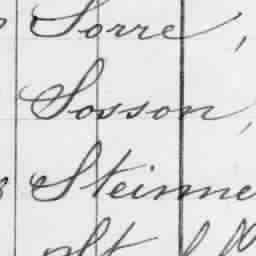 Sorre,
Sosson,
Steinme
St